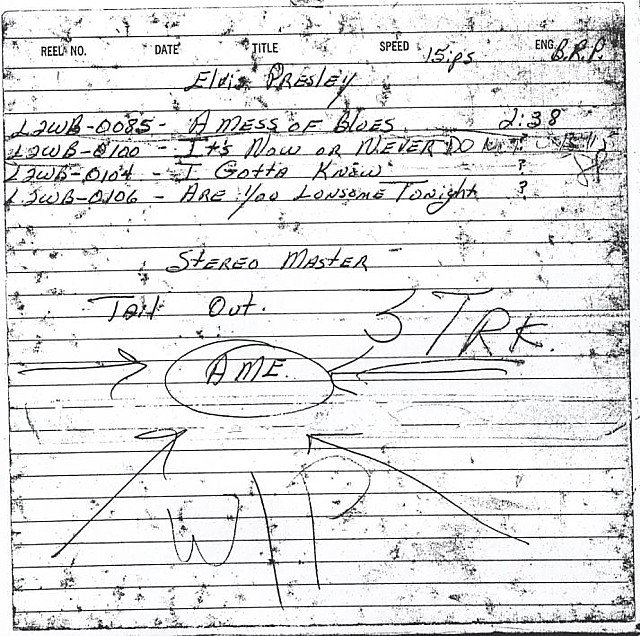 REEL NO. DATE TITLE SPEED 15ips ENG. B.R.P.
Elvis PRESLEY
L2WB-0085- A MESS OF BLUES 2:38
L2WB-0100 - It's NOW OR NEVER DO NOT
L2WB-0104 - I GOTTA KNOW ?
L2WB-0106 - ARE YOU LONSOME TONight ?
STEREO MASTER
TAIL OUT.
3 TRK.
AME
W/P